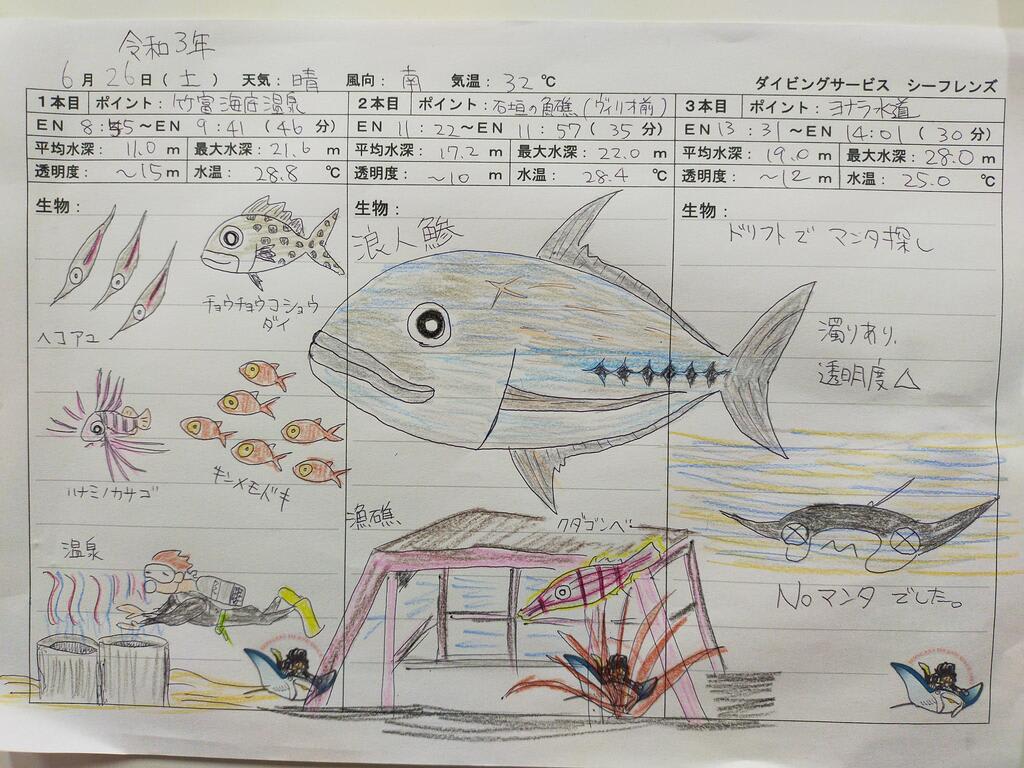 令和3年
6月26日(土) 天気:晴 風向:南 気温:32℃
ダイビングサービス シーフレンズ
1本目 ポイント:竹富海底温泉
EN 8:55〜EN 9:41 (46分)
平均水深:11.0m 最大水深:21.6m
透明度:〜15m 水温:28.8℃
生物:
ヘコアユ
チョウチョウコショウ
ダイ
ハナミノカサゴ
キンメモドキ
温泉
2本目 ポイント:石垣の魚礁(ヴィリオ前)
EN 11:22〜EN 11:57 (35分)
平均水深:17.2m 最大水深:22.0m
透明度:〜10m 水温:28.4℃
生物:
浪人鰺
漁礁
クダゴンベ
3本目 ポイント:ヨナラ水道
EN 13:31〜EN 14:01 (30分)
平均水深:19.0m 最大水深:28.0m
透明度:〜12m 水温:25.0℃
生物:
ドリフトで マンタ探し
濁りあり、
透明度△
Noマンタ でした。